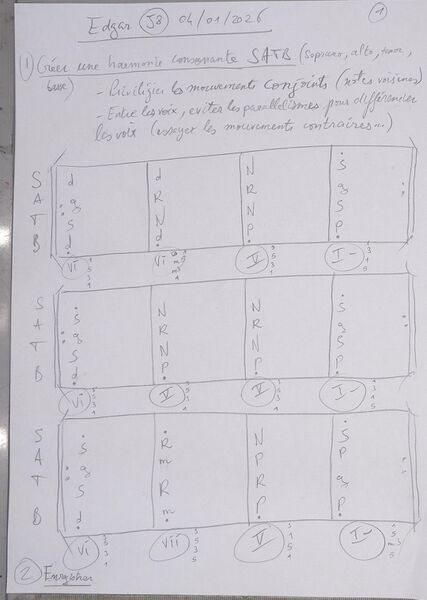 Edgar J8 04/01/2026 1
1) Créer une harmonie consonante SATB (soprano, alto, tenor,
basse) - Privilégier les mouvements conjoints (notes voisines)
- Entre les voix, eviter les parallélismes pour différencier
les voix (essayer les mouvements contraires...)
S d d N S
A g R R g
T S N N S
B d d P P
vi vi V I-
S S N N S
A g R R g
T S N N S
B d P P P
vi V V I-
S S R N S
A g m P P
T S R R g
B d m P P
vi vii V I-
2 Enregistrer